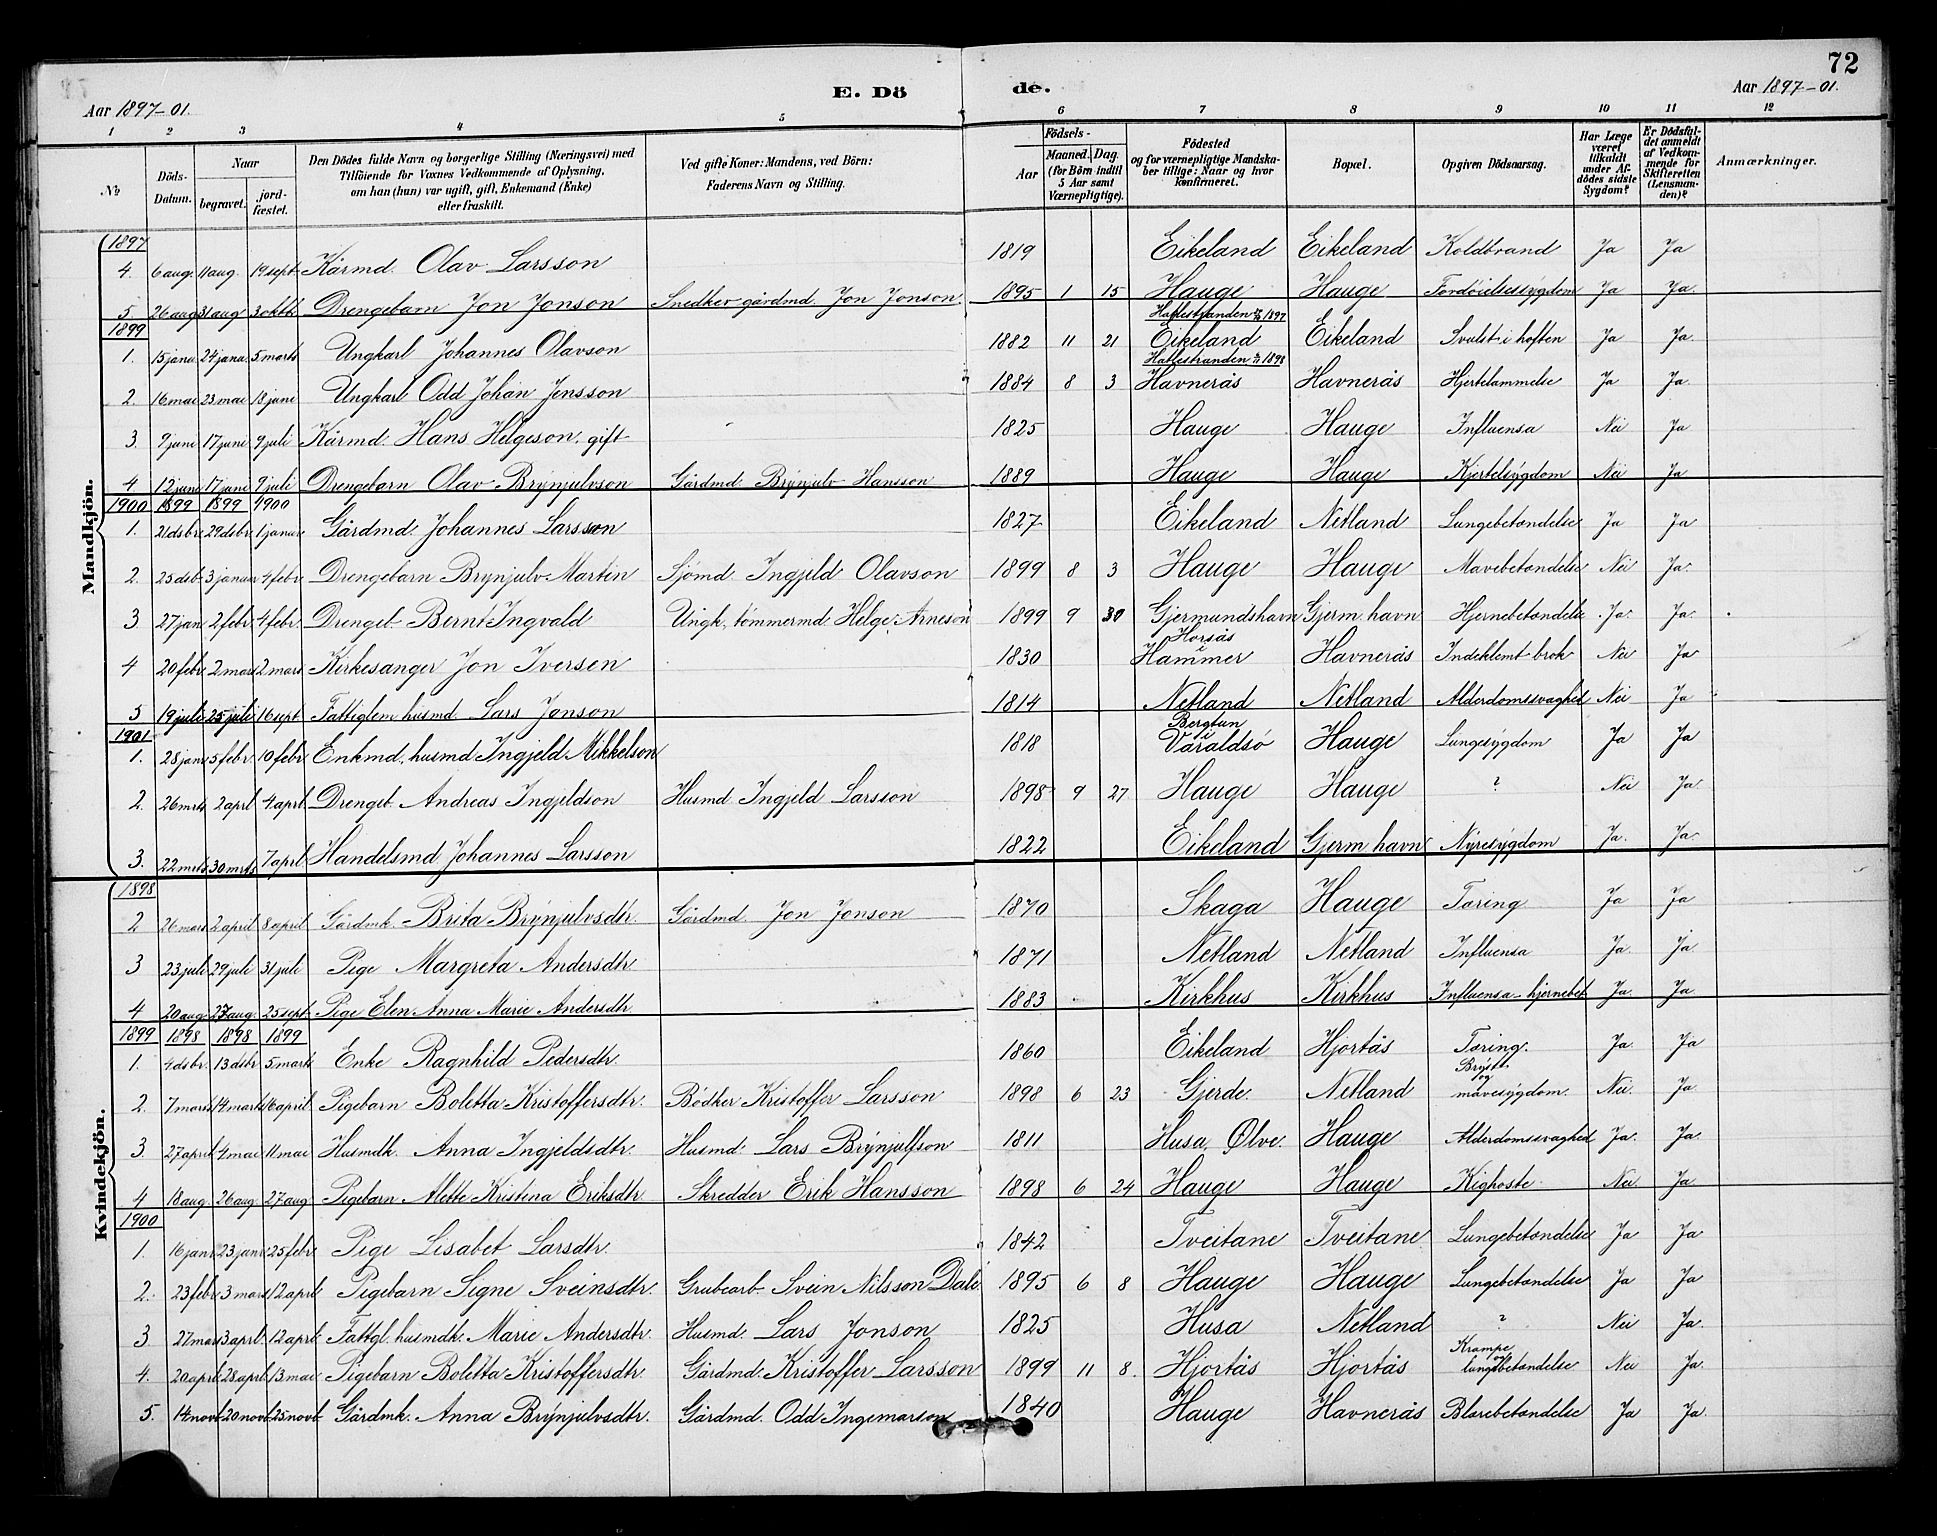 72
Aar 1897-01. E. Dö de. Aar 1897-01.
1 2 3 4 5 6 7 8 9 10 11 12
No Döds-Datum. Naar begravet. jord-fæstet. Den Dödes fulde Navn og borgerlige Stilling (Næringsvei) med Tilföiende for Voxnes Vedkommende af Oplysning, om han (hun) var ugift, gift, Enkemand (Enke) eller fraskilt. Ved gifte Koner: Mandens, ved Börn: Faderens Navn og Stilling. Födsels- Aar Maaned. Dag. (for Börn indtil 5 Aar samt Værnepligtige). Födested og for værnepligtige Mandskaber tillige: Naar og hvor konfirmeret. Bopæl. Opgiven Dödsaarsag. Har Læge været tilkaldt under Afdödes sidste Sygdom? Er Dödsfaldet anmeldt af Vedkommende for Skifteretten (Lensmanden)? Anmærkninger.
Mandkjön.
1897
4. 6 aug. 11 aug. 19 sept. Kårmd. Olav Larsson 1819 Eikeland Eikeland Koldbrand Ja Ja
5 26 aug 31 aug 3 oktb. Drengebarn Jon Jonson Snedker gårdmd. Jon Jonson. 1895 1 15 Hauge Hauge Fordöielsessygdom Ja Ja.
1899 Hatlestranden 1897
1. 15 janu. 24 janu. 5 marts Ungkarl Johannes Olavson 1882 11 21 Eikeland Eikeland Svulst i hoften Ja Ja.
Hatlestranden 1898
2. 16 mai 23 mai 18 juni Ungkarl Odd Johan Jensson 1884 8 3 Havnerås Havnerås Hjertelammelse Ja Ja.
3. 9 juni 17 juni 9 juli Kårmd. Hans Helgeson, gift 1825 Hauge Hauge Influensa Nei Ja
4 12 juni 17 juni 9 juli Drengebarn Olav Brynjulvson Gårdmd Brynjulv Hansson 1889 Hauge Hauge Kjertelsygdom Nei Ja
1900 1899 1899 1900
1. 21 dsbr. 29 dsbr. 1 januar Gårdmd. Johannes Larsson 1827 Eikeland Netland Lungebetændelse Ja Ja
2. 25 dsb. 3 januar 4 febr. Drengebarn Brynjulv Martin Sjömd. Ingjeld Olavson 1899 8 3 Hauge Hauge Mavebetændelse Nei Ja.
3. 27 jan 2 febr. 4 febr. Drengeb. Bernt Ingvald Ungk, tömmermd Helge Arneson 1899 9 30 Gjermundshavn Gjerm. havn Hjernebetændelse Ja. Ja.
4 20 febr. 2 mars 2 mars Kirkesanger Jon Iversen 1830 Horsås i Hammer Havnerås Indeklemt brok Nei Ja
5 19 juli 25 juli 16 sept Fattiglem husmd Lars Jonson 1814 Netland Netland Alderdomssvaghed Nei Ja
1901
1. 28 jan. 5 febr. 10 febr Enkmd, husmd Ingjeld Mikkelson 1818 Bergtun i Varaldsö Hauge Lungesygdom Ja Ja
2. 26 mrts 2 aprl 4 aprl. Drengeb. Andreas Ingjeldson Husmd Ingjeld Larsson 1898 9 27 Hauge Hauge ? Nei Ja.
3. 22 mrts 30 mrts 7 aprl Handelsmd Johannes Larsson 1822 Eikeland Gjerm havn Nyresygdom Ja. Ja.
Kvindekjön.
1898
2 26 mars 2 april 8 april Gårdmk. Brita Brynjulvsdtr. Gårdmd. Jon Jonson 1870 Skaga Hauge Tæring Ja Ja
3 23 juli 29 juli 31 juli Pige Margreta Andersdtr 1871 Netland Netland Influensa Ja. Ja.
4 20 aug. 27 aug. 25 sept. Pige Elen Anna Marie Andersdtr 1883 Kirkhus Kirkhus Influensa-hjernebet. Ja. Ja.
1899 1898 1898 1899
1. 4 dsbr. 13 dsbr 5 marts Enke Ragnhild Pedersdtr. 1860 Eikeland Hjortås Tæring. Ja. Ja
2. 7 marts 14 marts 16 april Pigebarn Boletta Kristoffersdtr. Bödker Kristoffer Larsson 1898 6 23 Gjerde. Netland Bryst og mavesygdom. Nei. Ja
3. 27 april 4 mai 11 mai Husmdk. Anna Ingjeldsdtr. Husmd. Lars Brynjulfson 1811 Husa, Ølve. Hauge Alderdomssvaghed Ja. Ja.
4 18 aug. 26 aug. 27 aug Pigebarn Alette Kristina Eriksdtr. Skredder Erik Hansson 1898 6 24 Hauge Hauge Kighoste Nei Ja
1900
1. 16 janr. 23 janr. 25 febr. Pige Lisabet Larsdtr. 1842 Tveitane Tveitane Lungebetændelse Ja Ja
2. 23 febr. 3 mars 12 aprl. Pigebarn Signe Sveinsdtr. Grubearb. Svein Nilsson Dale 1895 6 8 Hauge Hauge Lungebetændelse Ja Ja
3 27 mars 3 aprl. 12 aprl. Fattgl. husmdk. Marie Andersdtr. Husmd. Lars Jonson 1825 Husa Netland ? Nei Ja.
4. 20 aprl 28 aprl. 13 mai Pigebarn Boletta Kristoffersdtr. Gårdmd. Kristoffer Larsson 1899 11 8. Hjortås Hjortås Krampe og lungebetændelse Nei Ja.
5. 14 novb. 20 novb. 25 novb. Gårdmk. Anna Brynjulvsdtr. Gårdmd. Odd Ingemarson 1840 Hauge Havnerås Blærebetændelse Ja Ja.